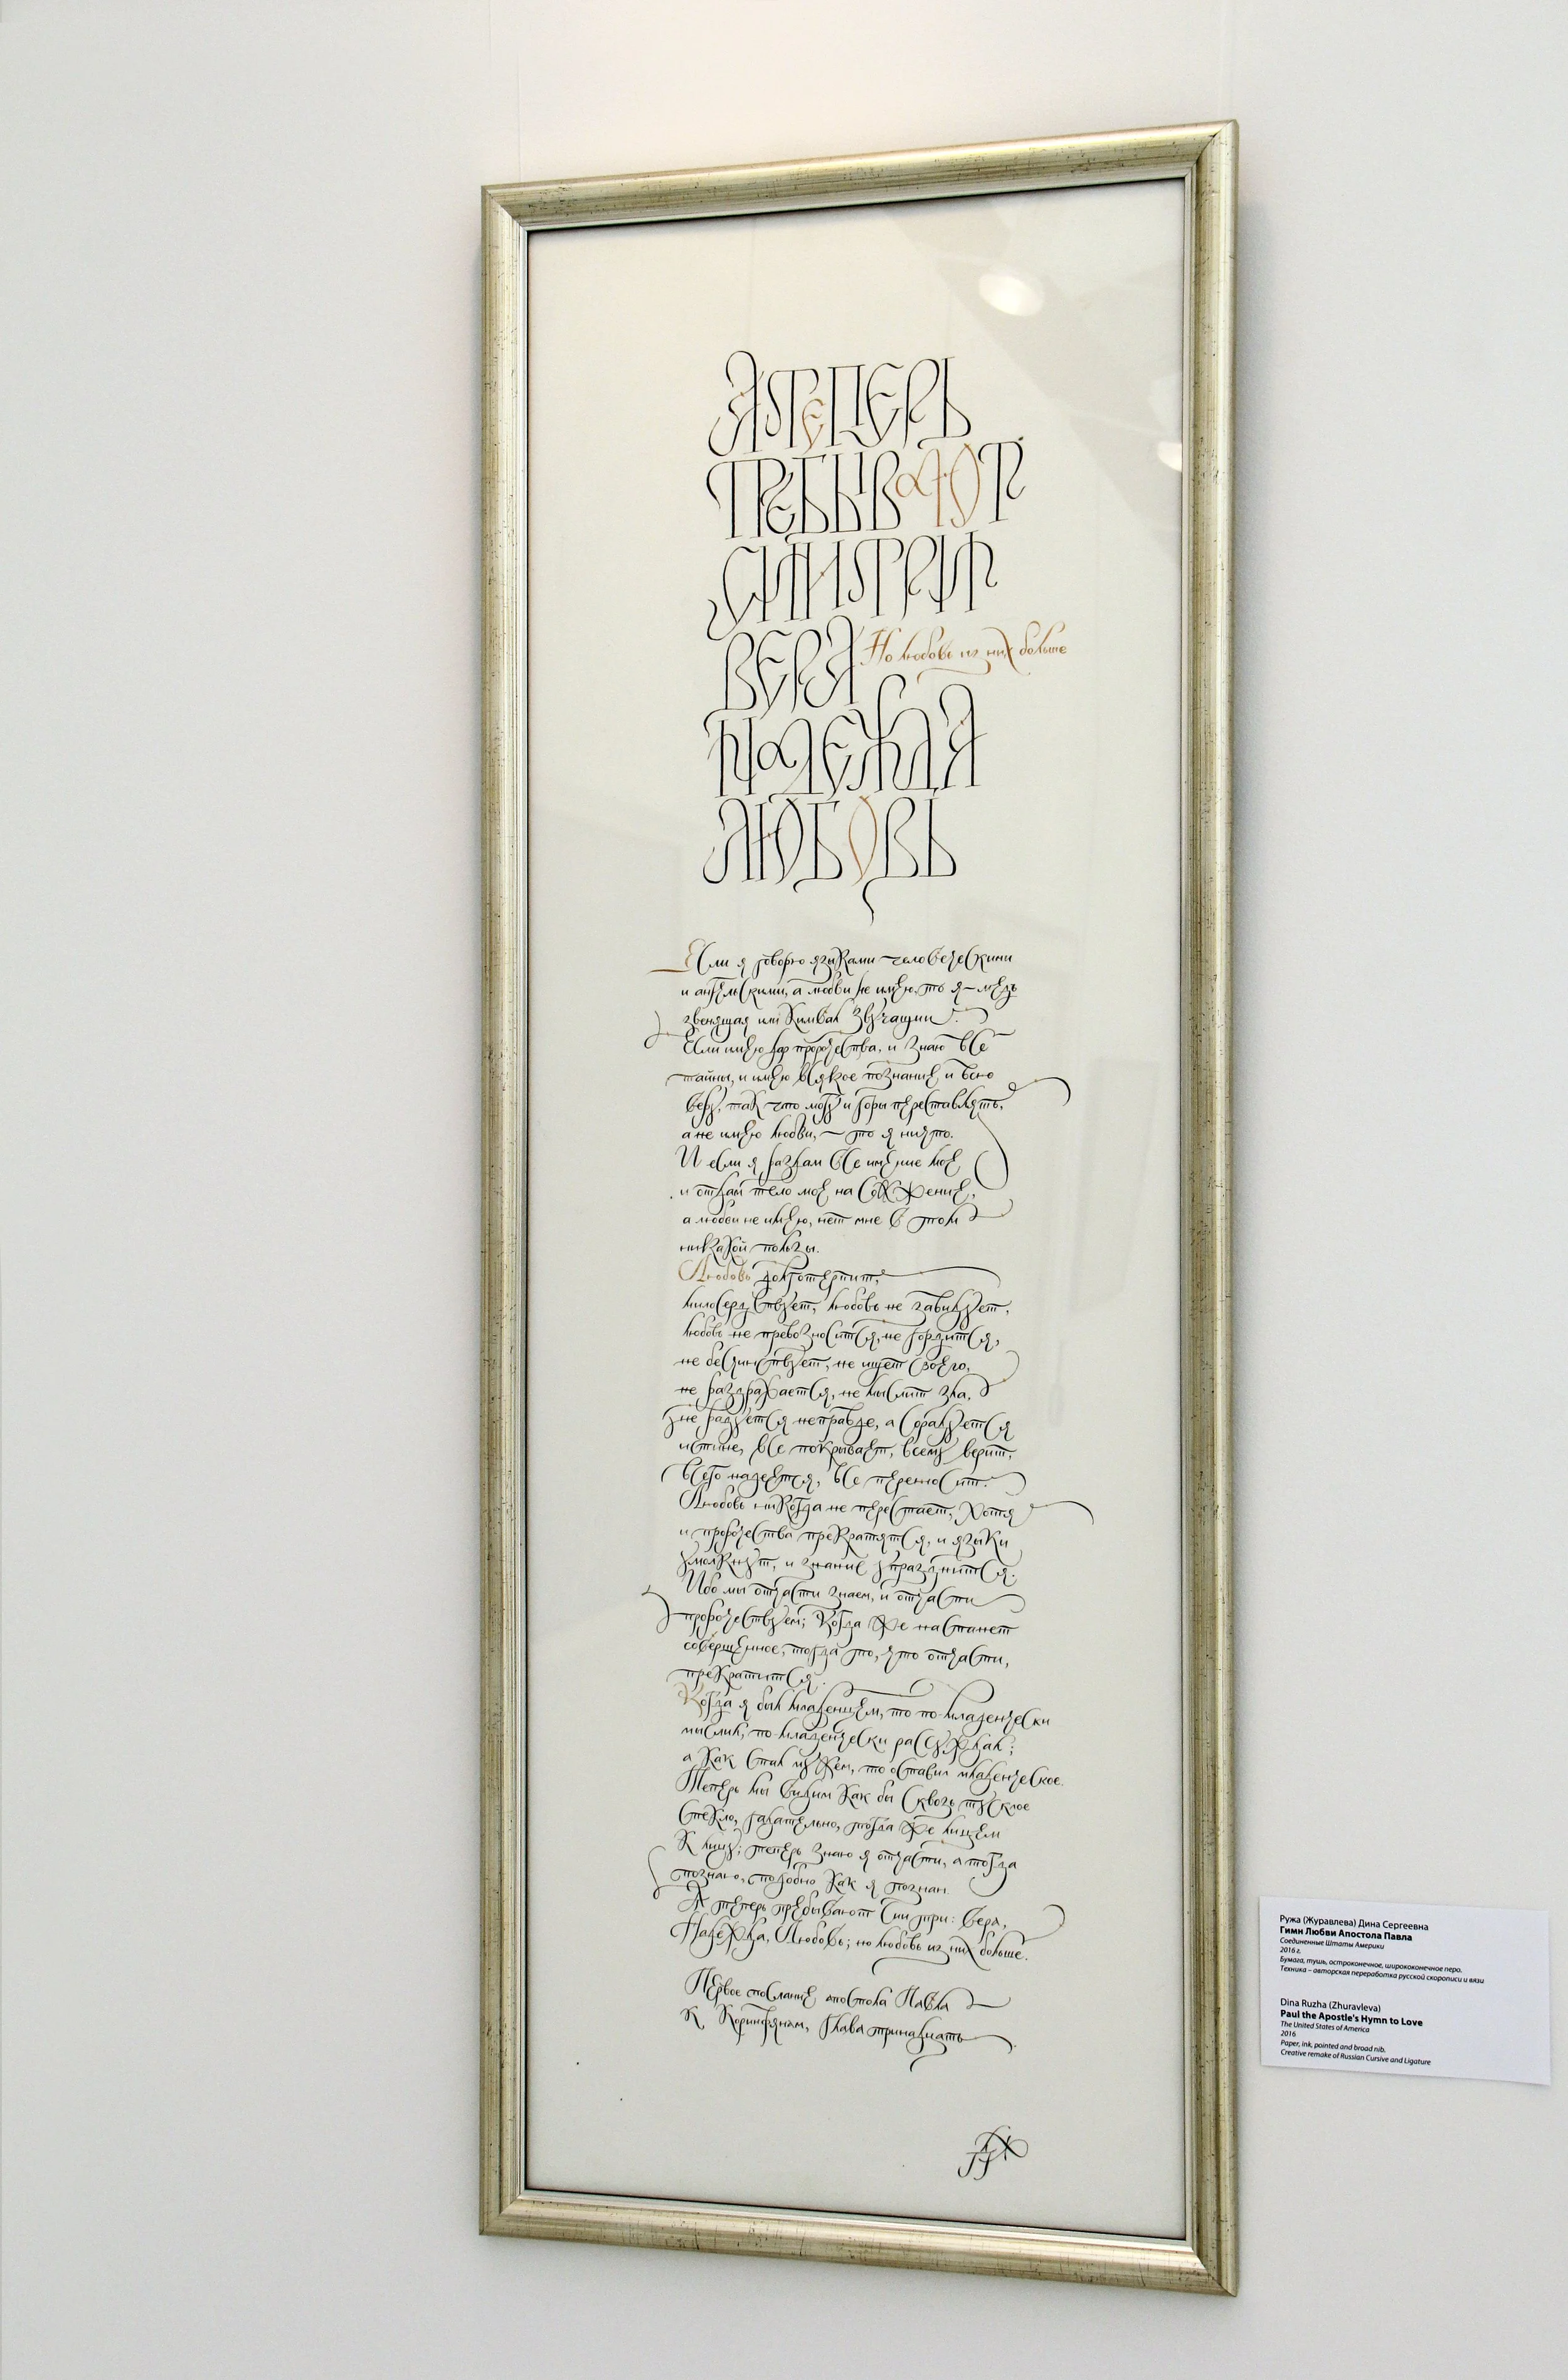 А ТЕПЕРЬ
ПРЕБЫВАЮТ
СИИ ТРИ
ВЕРА
Но любовь из них больше
НАДЕЖДА
ЛЮБОВЬ
Если я говорю языками человеческими
и ангельскими, а любви не имею, то я – медь
звенящая или кимвал звучащий.
Если имею дар пророчества, и знаю все
тайны, и имею всякое познание и всю
веру, так что могу и горы переставлять,
а не имею любви, – то я ничто.
И если я раздам все имение мое
и отдам тело мое на сожжение,
а любви не имею, нет мне в том
никакой пользы.
Любовь долготерпит,
милосердствует, любовь не завидует,
любовь не превозносится, не гордится,
не бесчинствует, не ищет своего,
не раздражается, не мыслит зла,
не радуется неправде, а сорадуется
истине, все покрывает, всему верит,
всего надеется, все переносит.
Любовь никогда не перестает, хотя
и пророчества прекратятся, и языки
умолкнут, и знание упразднится.
Ибо мы отчасти знаем, и отчасти
пророчествуем; когда же настанет
совершенное, тогда то, что отчасти,
прекратится.
Когда я был младенцем, то по-младенчески
мыслил, по-младенчески рассуждал;
а как стал мужем, то оставил младенческое.
Теперь мы видим как бы сквозь тусклое
стекло, гадательно, тогда же лицем
к лицу; теперь знаю я отчасти, а тогда
познаю, подобно как я познан.
А теперь пребывают сии три: вера,
Надежда, Любовь; но любовь из них больше.
Первое послание апостола Павла
к Коринфянам, глава тринадцать
Ружа (Журавлева) Дина Сергеевна
Гимн Любви Апостола Павла
Соединенные Штаты Америки
2016 г.
Бумага, тушь, остроконечное, ширококонечное перо.
Техника – авторская переработка русской скорописи и вязи
Dina Ruzha (Zhuravleva)
Paul the Apostle's Hymn to Love
The United States of America
2016
Paper, ink, pointed and broad nib.
Creative remake of Russian Cursive and Ligature